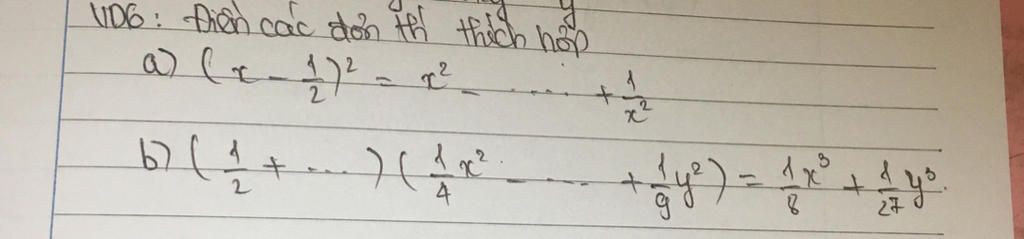 VD6: Điền các đơn thí thích hợp
a) (x - 1/2)² = x² - ..... + 1/x²
b) (1/2 + ...) (1/4 x² - ..... + 1/9 y²) = 1/8 x³ + 1/27 y³.